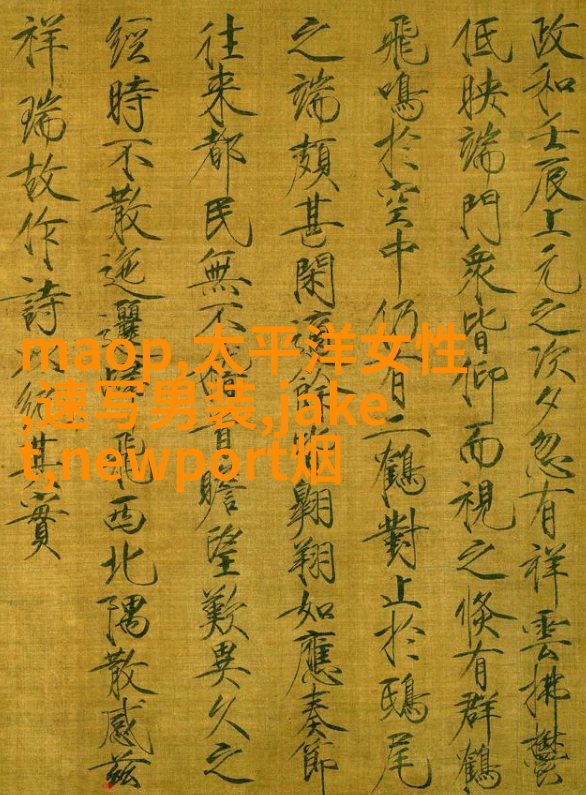 政和壬辰上元之次夕忽有祥雲拂鬱
低映端門衆皆仰而視之倏有群鶴
飛鳴於空中仍有二鶴對止於鴟尾
之端頗甚閑適翺翔如應奏節
往來都民無不首瞻望歎異久之
經時不散迤邐飛西北隅散感茲
祥瑞故作詩紀其實
maop,太平洋女性
,速写男装,jake
t,newport烟